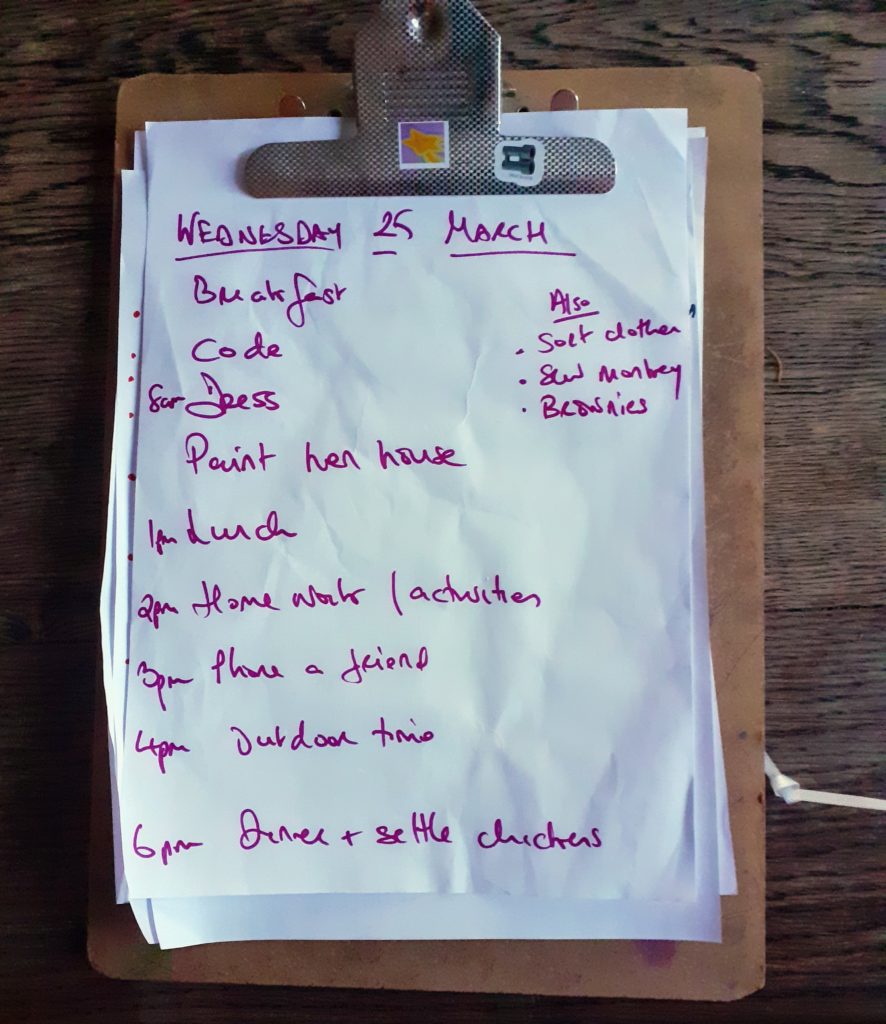 WEDNESDAY 25 MARCH
Breakfast
Code
8am Dress
Paint hen house
1pm Lunch
2pm Home work / activities
3pm Phone a friend
4pm Outdoor time
6pm Dinner + settle chickens
Also
• Sort clothes
• Sew monkey
• BROWNIES